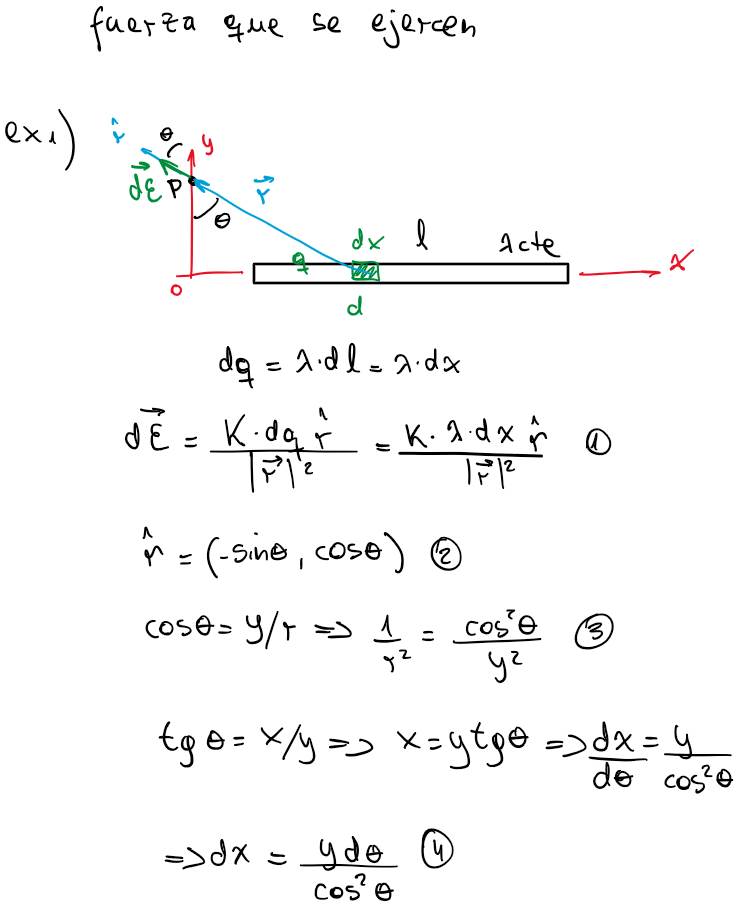 fuerza que se ejercen
ex1)
r̂ θ y
dE⃗ P r⃗
θ
dx l λcte
q x
0 d
dq = λ·dl = λ·dx
dE⃗ = K·dq r̂ / |r⃗|² = K·λ·dx r̂ / |r⃗|² ①
r̂ = (-sinθ, cosθ) ②
cosθ = y/r => 1/r² = cos²θ/y² ③
tgθ = x/y => x = ytgθ => dx/dθ = y/cos²θ
=> dx = ydθ/cos²θ ④